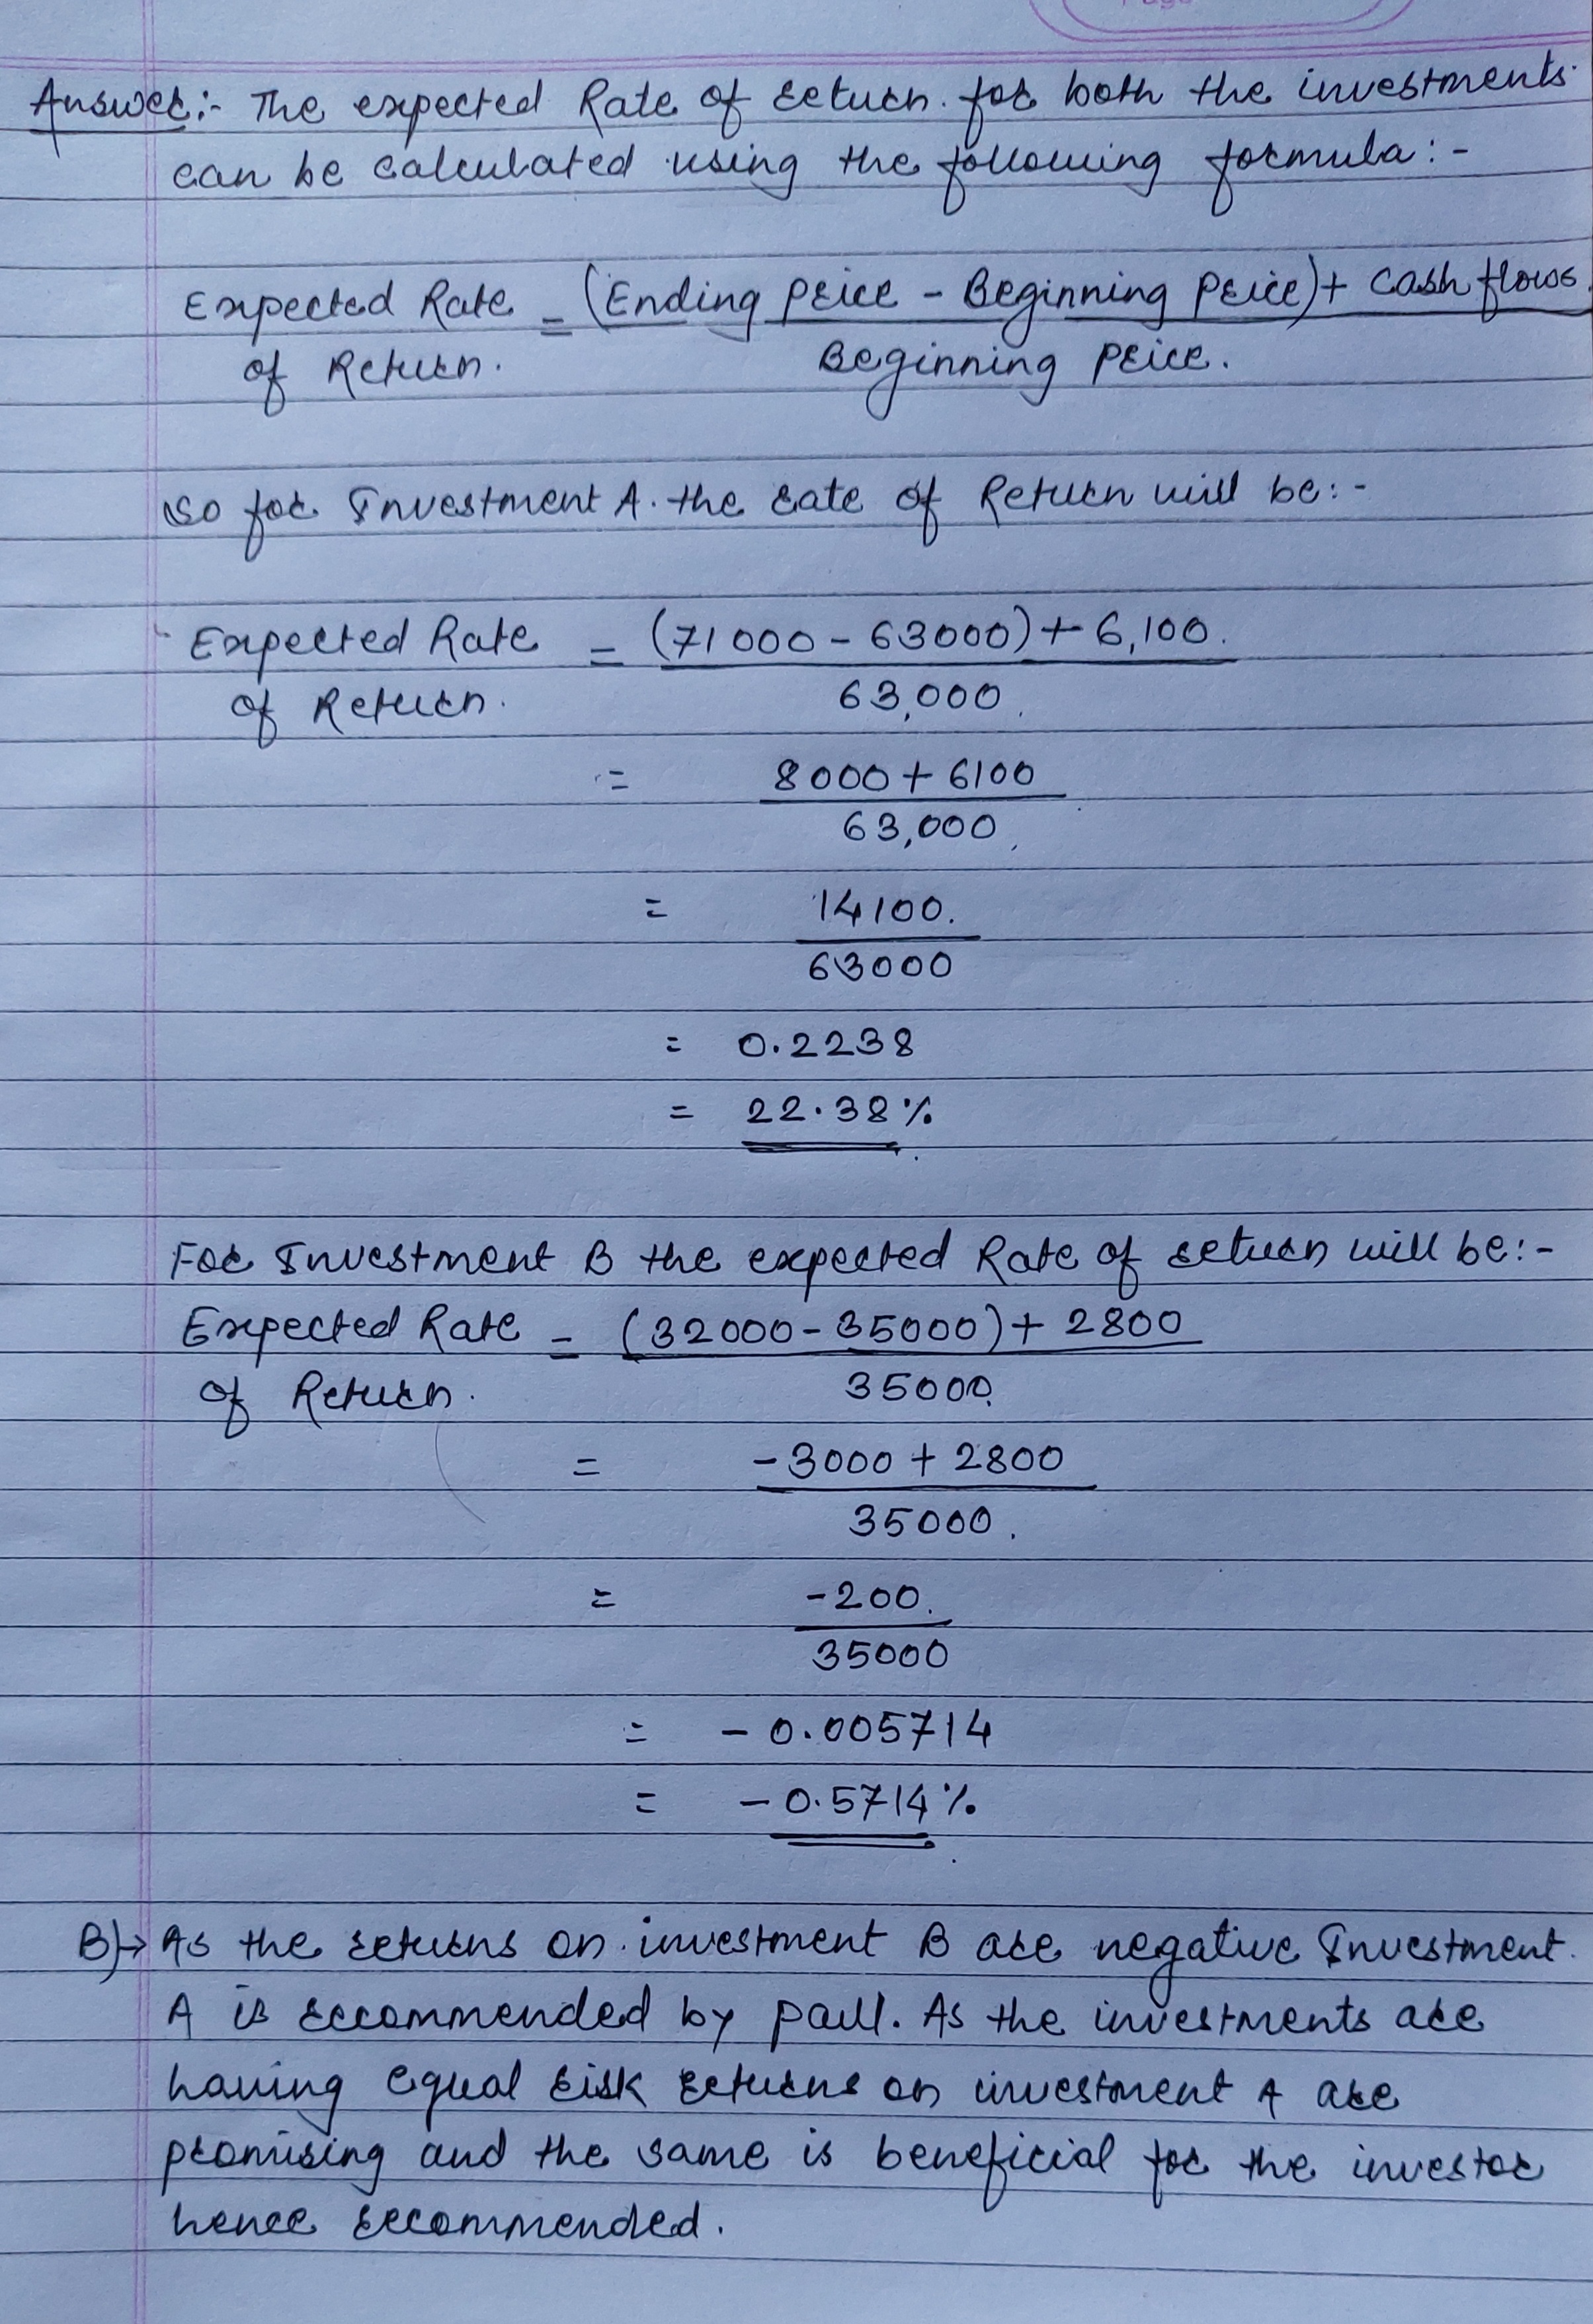 Page
Answer:- The expected Rate of return. for both the investments.
can be calculated using the following formula:-
Expected Rate of Return. = (Ending price - Beginning price) + cash flows. / Beginning price.
So for Investment A. the rate of Return will be:-
Expected Rate of Return. = (71000 - 63000) + 6,100. / 63,000.
= 8000 + 6100 / 63,000.
= 14100. / 63000
= 0.2238
= 22.38%
For Investment B the expected Rate of return will be:-
Expected Rate of Return. = (32000 - 35000) + 2800 / 35000.
= -3000 + 2800 / 35000.
= -200. / 35000
= -0.005714
= -0.5714%
B)→ As the returns on investment B are negative Investment.
A is recommended by paul. As the investments are
having equal risk returns on investment A are
promising and the same is beneficial for the investor
hence recommended.